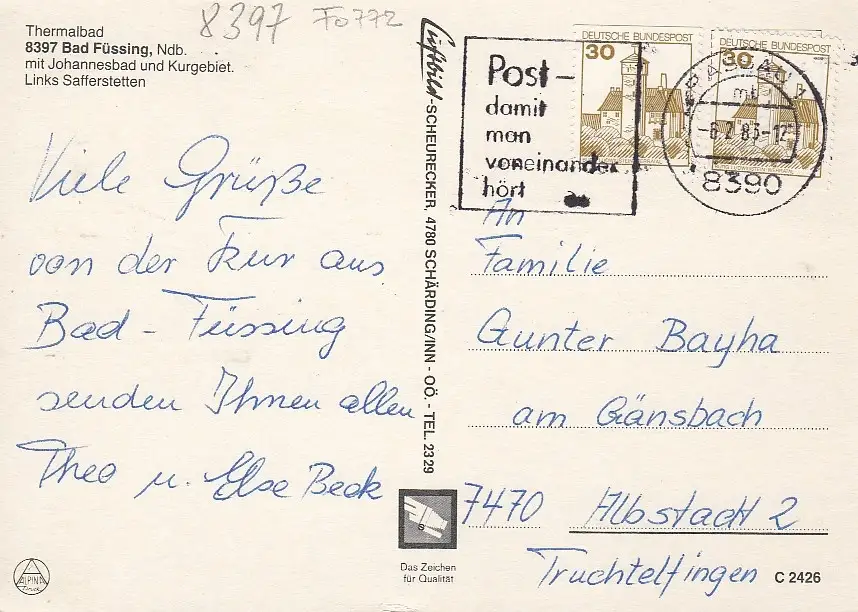 8397 Fo 772
Thermalbad
8397 Bad Füssing, Ndb.
mit Johannesbad und Kurgebiet.
Links Safferstetten
Viele Grüße
von der Kur aus
Bad - Füssing
senden Ihnen allen
Theo u. Else Beck
ALPINA
Druck
Luftbild-SCHEURECKER, 4780 SCHÄRDING/INN - OÖ. - TEL. 2329
S
Das Zeichen
für Qualität
Post-
damit
man
voneinander
hört
DEUTSCHE BUNDESPOST
30
DEUTSCHE BUNDESPOST
30
8390
An
Familie
Gunter Bayha
am Gänsbach
7470 Albstadt 2
Truchtelfingen
C 2426